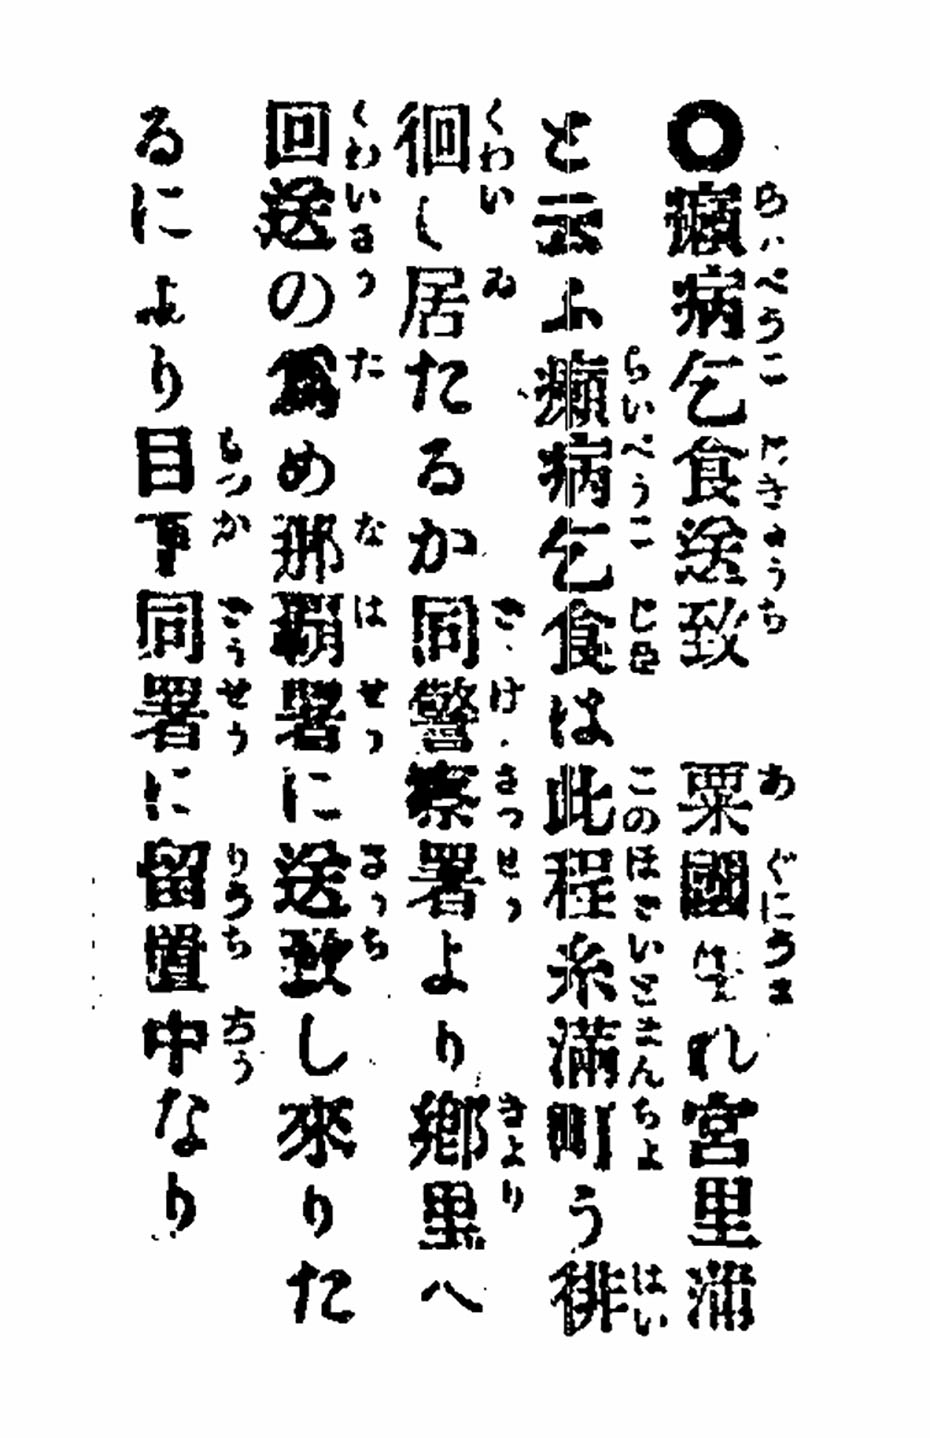 ○癩病乞食送致　粟國生れ宮里蒲
と云ふ癩病乞食は此程糸滿町う徘
徊し居たるか同警察署より郷里へ
回送の爲め那覇署に送致し來りた
るにより目下同署に留置中なり